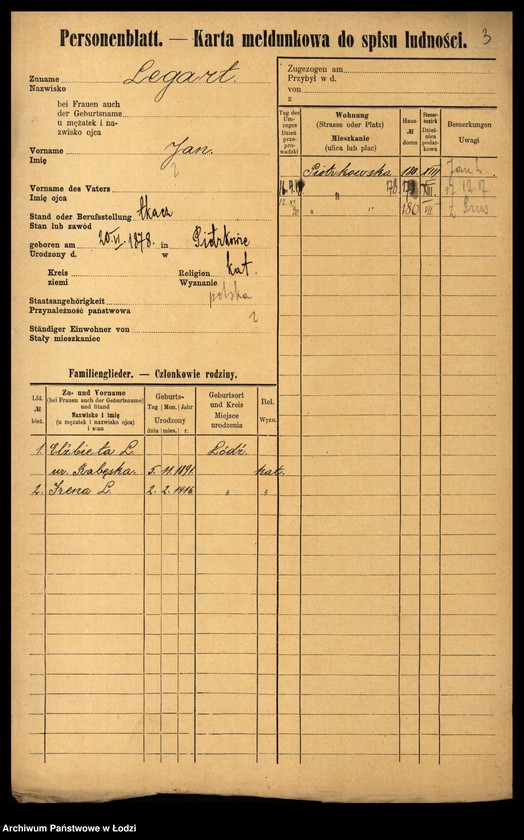 Personenblatt. — Karta meldunkowa do spisu ludności. 3
Zuname
Nazwisko
Legart.
bei Frauen auch
der Geburtsname
u mężatek i na-
zwisko ojca
Vorname
Imię
Jan.
Vorname des Vaters
Imię ojca
Stand oder Berufsstellung tkacz
Stan lub zawód
geboren am 20.VI. 1878. in Piotrkowie
Urodzony d. w
Kreis
ziemi
Religion kat.
Wyznanie
Staatsangehörigkeit polska
Przynależność państwowa
Ständiger Einwohner von
Stały mieszkaniec
Zugezogen am
Przybył w d.
von
z
Tag des
Um-
zuges
Dzień
prze-
prowadzki
Wohnung
(Strasse oder Platz)
Mieszkanie
(ulica lub plac)
Haus-
№
domu
Steuer-
bezirk
Dziel-
nica
podat-
kowa
Bemerkungen
Uwagi
Piotrkowska 180. XIII
78. XII. 17 12.17
" " 180 VII
Familienglieder. — Członkowie rodziny.
Lfd.
№
bież.
Zu- und Vorname
(bei Frauen auch der Geburtsname)
und Stand
Nazwisko i imię
(u mężatek i nazwisko ojca)
i stan
Geburts-
Tag Mon. Jahr
Urodzony
dnia mies. r.
Geburtsort
und Kreis
Miejsce
urodzenia
Rel.
Wyzn.
1. Elżbieta L. Łódź.
ur. Rabęska. 5. 11. 1891. kat.
2. Irena L. 2. 2. 1916. " "
Archiwum Państwowe w Łodzi